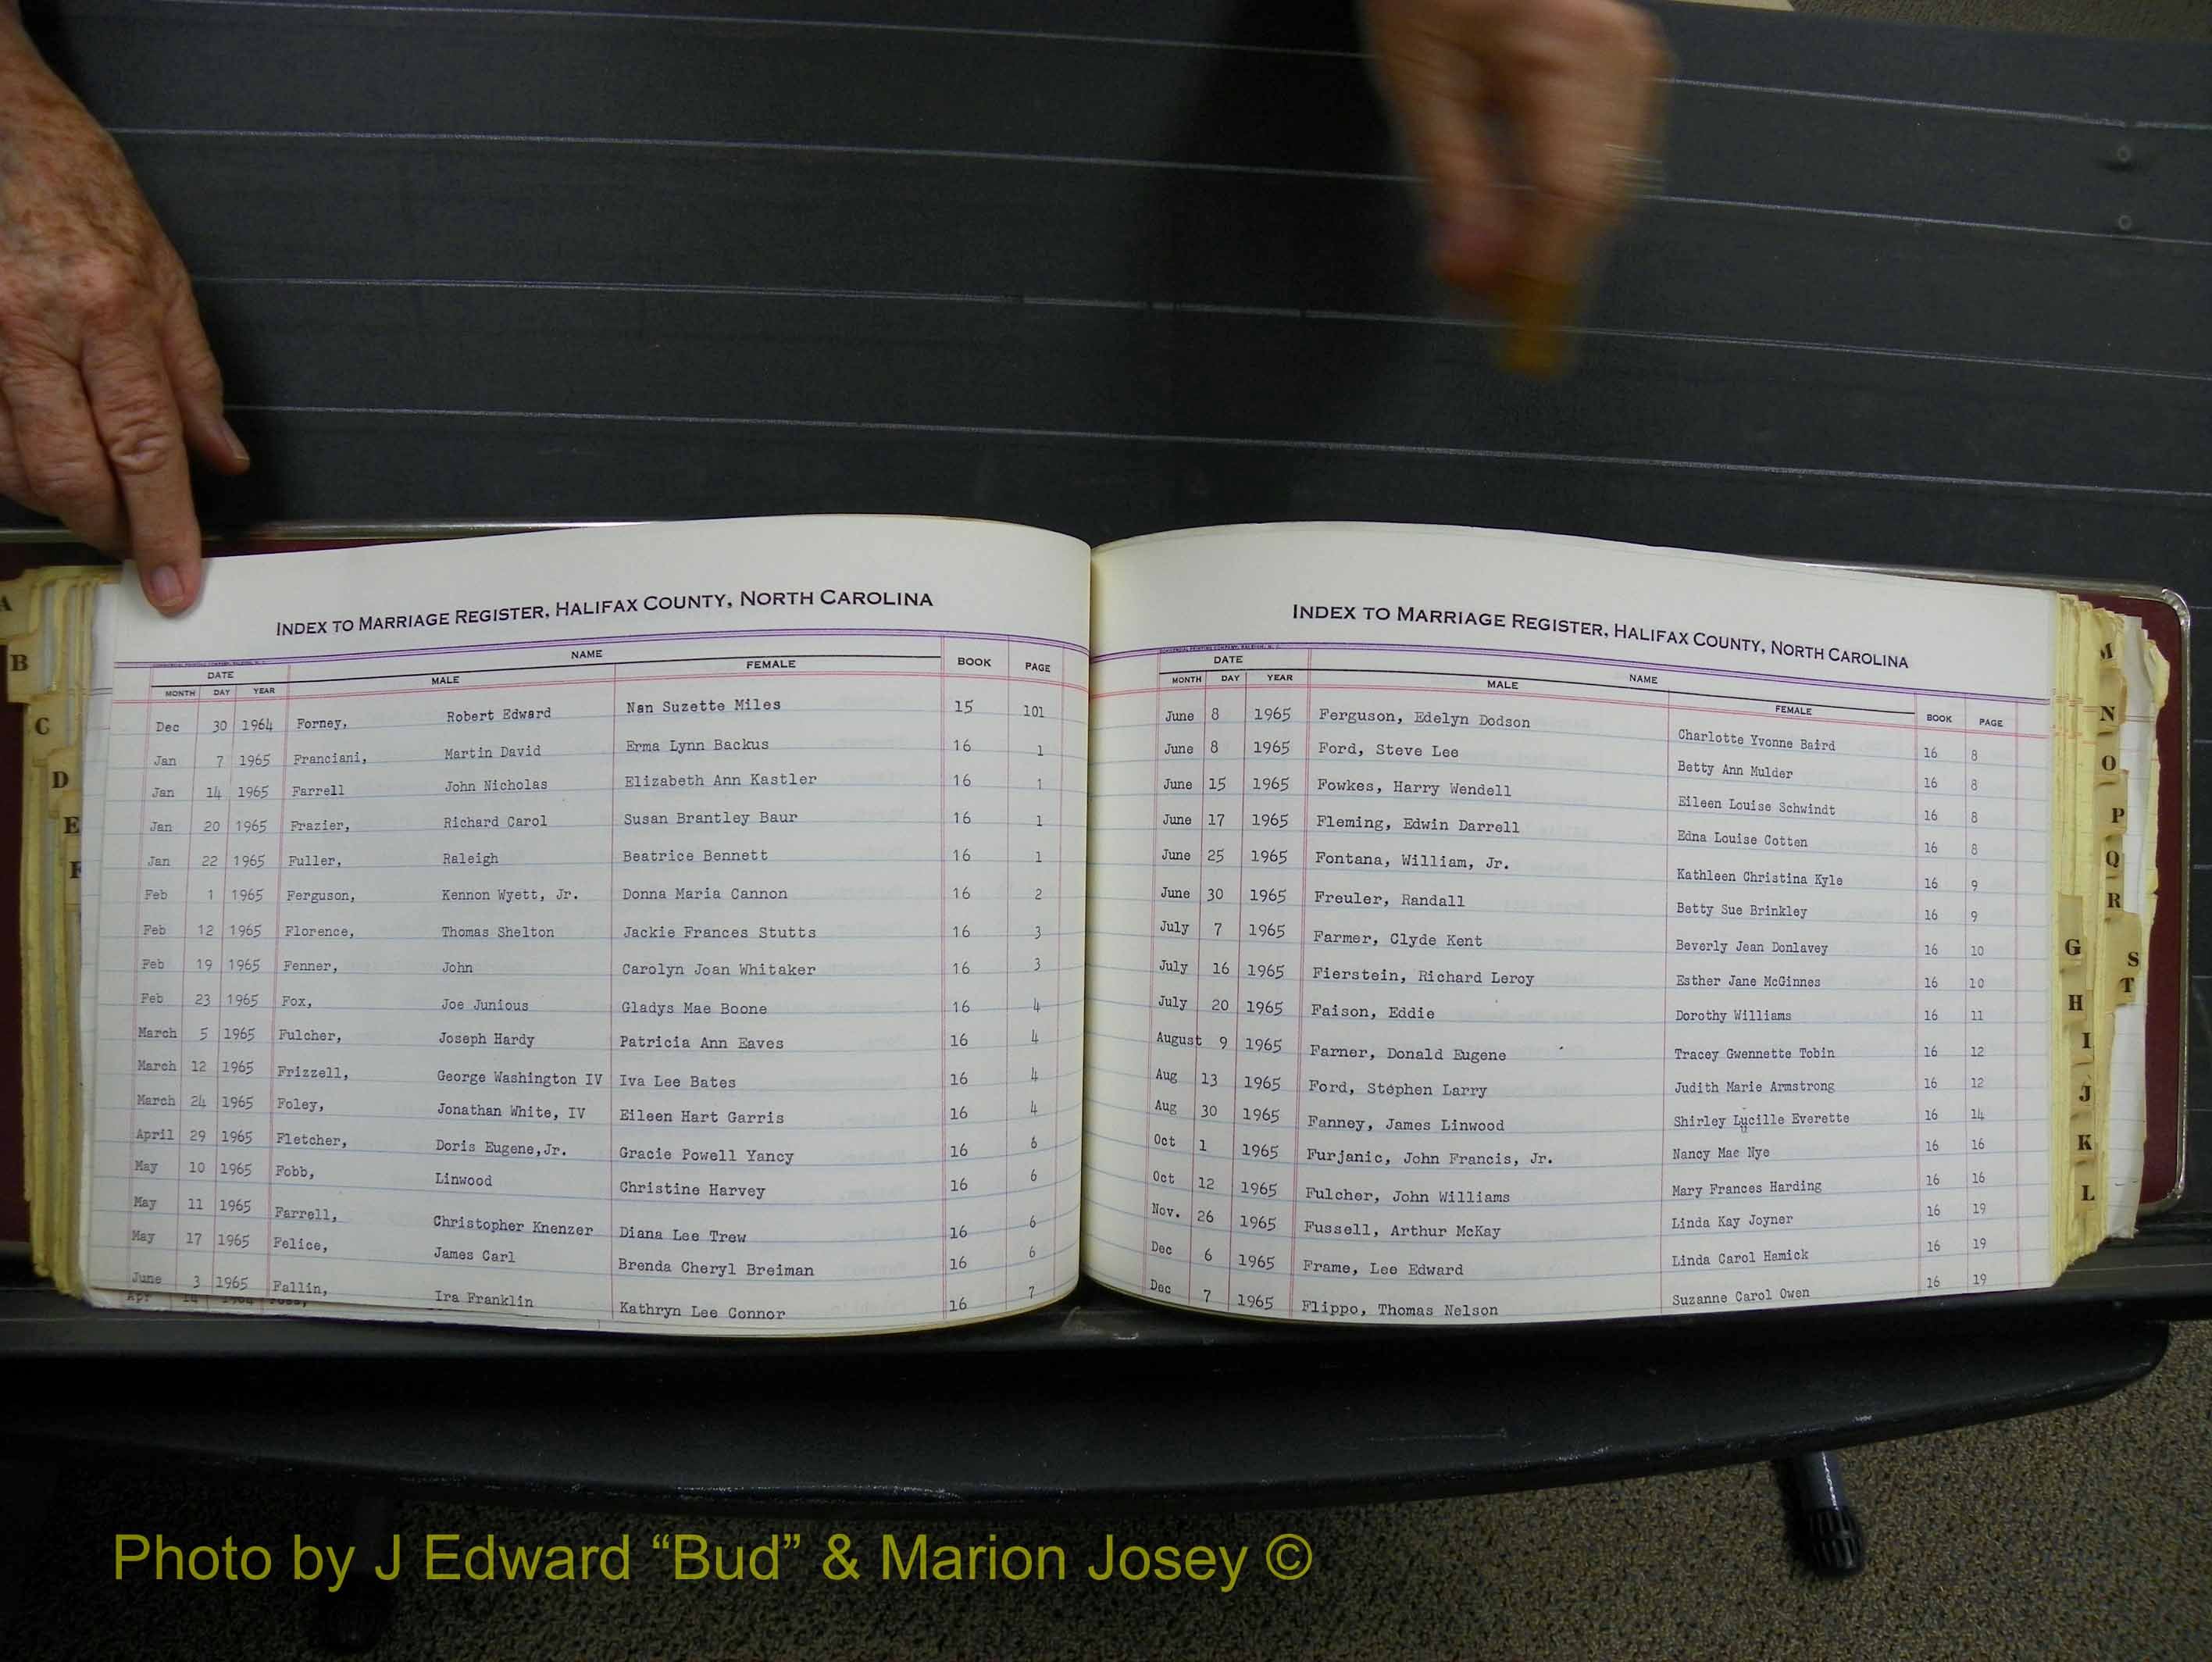 INDEX TO MARRIAGE REGISTER, HALIFAX COUNTY, NORTH CAROLINA
DATE NAME
MONTH DAY YEAR MALE FEMALE BOOK PAGE
Dec 30 1964 Forney, Robert Edward Nan Suzette Miles 15 101
Jan 7 1965 Franciani, Martin David Erma Lynn Backus 16 1
Jan 14 1965 Farrell John Nicholas Elizabeth Ann Kastler 16 1
Jan 20 1965 Frazier, Richard Carol Susan Brantley Baur 16 1
Jan 22 1965 Fuller, Raleigh Beatrice Bennett 16 1
Feb 1 1965 Ferguson, Kennon Wyett, Jr. Donna Maria Cannon 16 2
Feb 12 1965 Florence, Thomas Shelton Jackie Frances Stutts 16 3
Feb 19 1965 Fenner, John Carolyn Joan Whitaker 16 3
Feb 23 1965 Fox, Joe Junious Gladys Mae Boone 16 4
March 5 1965 Fulcher, Joseph Hardy Patricia Ann Eaves 16 4
March 12 1965 Frizzell, George Washington IV Iva Lee Bates 16 4
March 24 1965 Foley, Jonathan White, IV Eileen Hart Garris 16 4
April 29 1965 Fletcher, Doris Eugene,Jr. Gracie Powell Yancy 16 6
May 10 1965 Fobb, Linwood Christine Harvey 16 6
May 11 1965 Farrell, Christopher Knenzer Diana Lee Trew 16 6
May 17 1965 Felice, James Carl Brenda Cheryl Breiman 16 6
June 3 1965 Fallin, Ira Franklin Kathryn Lee Connor 16 7
Apr 14 1964
INDEX TO MARRIAGE REGISTER, HALIFAX COUNTY, NORTH CAROLINA
DATE NAME
MONTH DAY YEAR MALE FEMALE BOOK PAGE
June 8 1965 Ferguson, Edelyn Dodson Charlotte Yvonne Baird 16 8
June 8 1965 Ford, Steve Lee Betty Ann Mulder 16 8
June 15 1965 Fowkes, Harry Wendell Eileen Louise Schwindt 16 8
June 17 1965 Fleming, Edwin Darrell Edna Louise Cotten 16 8
June 25 1965 Fontana, William, Jr. Kathleen Christina Kyle 16 9
June 30 1965 Freuler, Randall Betty Sue Brinkley 16 9
July 7 1965 Farmer, Clyde Kent Beverly Jean Donlavey 16 10
July 16 1965 Fierstein, Richard Leroy Esther Jane McGinnes 16 10
July 20 1965 Faison, Eddie Dorothy Williams 16 11
August 9 1965 Farner, Donald Eugene Tracey Gwennette Tobin 16 12
Aug 13 1965 Ford, Stephen Larry Judith Marie Armstrong 16 12
Aug 30 1965 Fanney, James Linwood Shirley Lucille Everette 16 14
Oct 1 1965 Furjanic, John Francis, Jr. Nancy Mae Nye 16 16
Oct 12 1965 Fulcher, John Williams Mary Frances Harding 16 16
Nov. 26 1965 Fussell, Arthur McKay Linda Kay Joyner 16 19
Dec 6 1965 Frame, Lee Edward Linda Carol Hamick 16 19
Dec 7 1965 Flippo, Thomas Nelson Suzanne Carol Owen 16 19
A
B
C
D
E
F
G
H
I
J
K
L
M
N
O
P
Q
R
S
T
Photo by J Edward “Bud” & Marion Josey ©